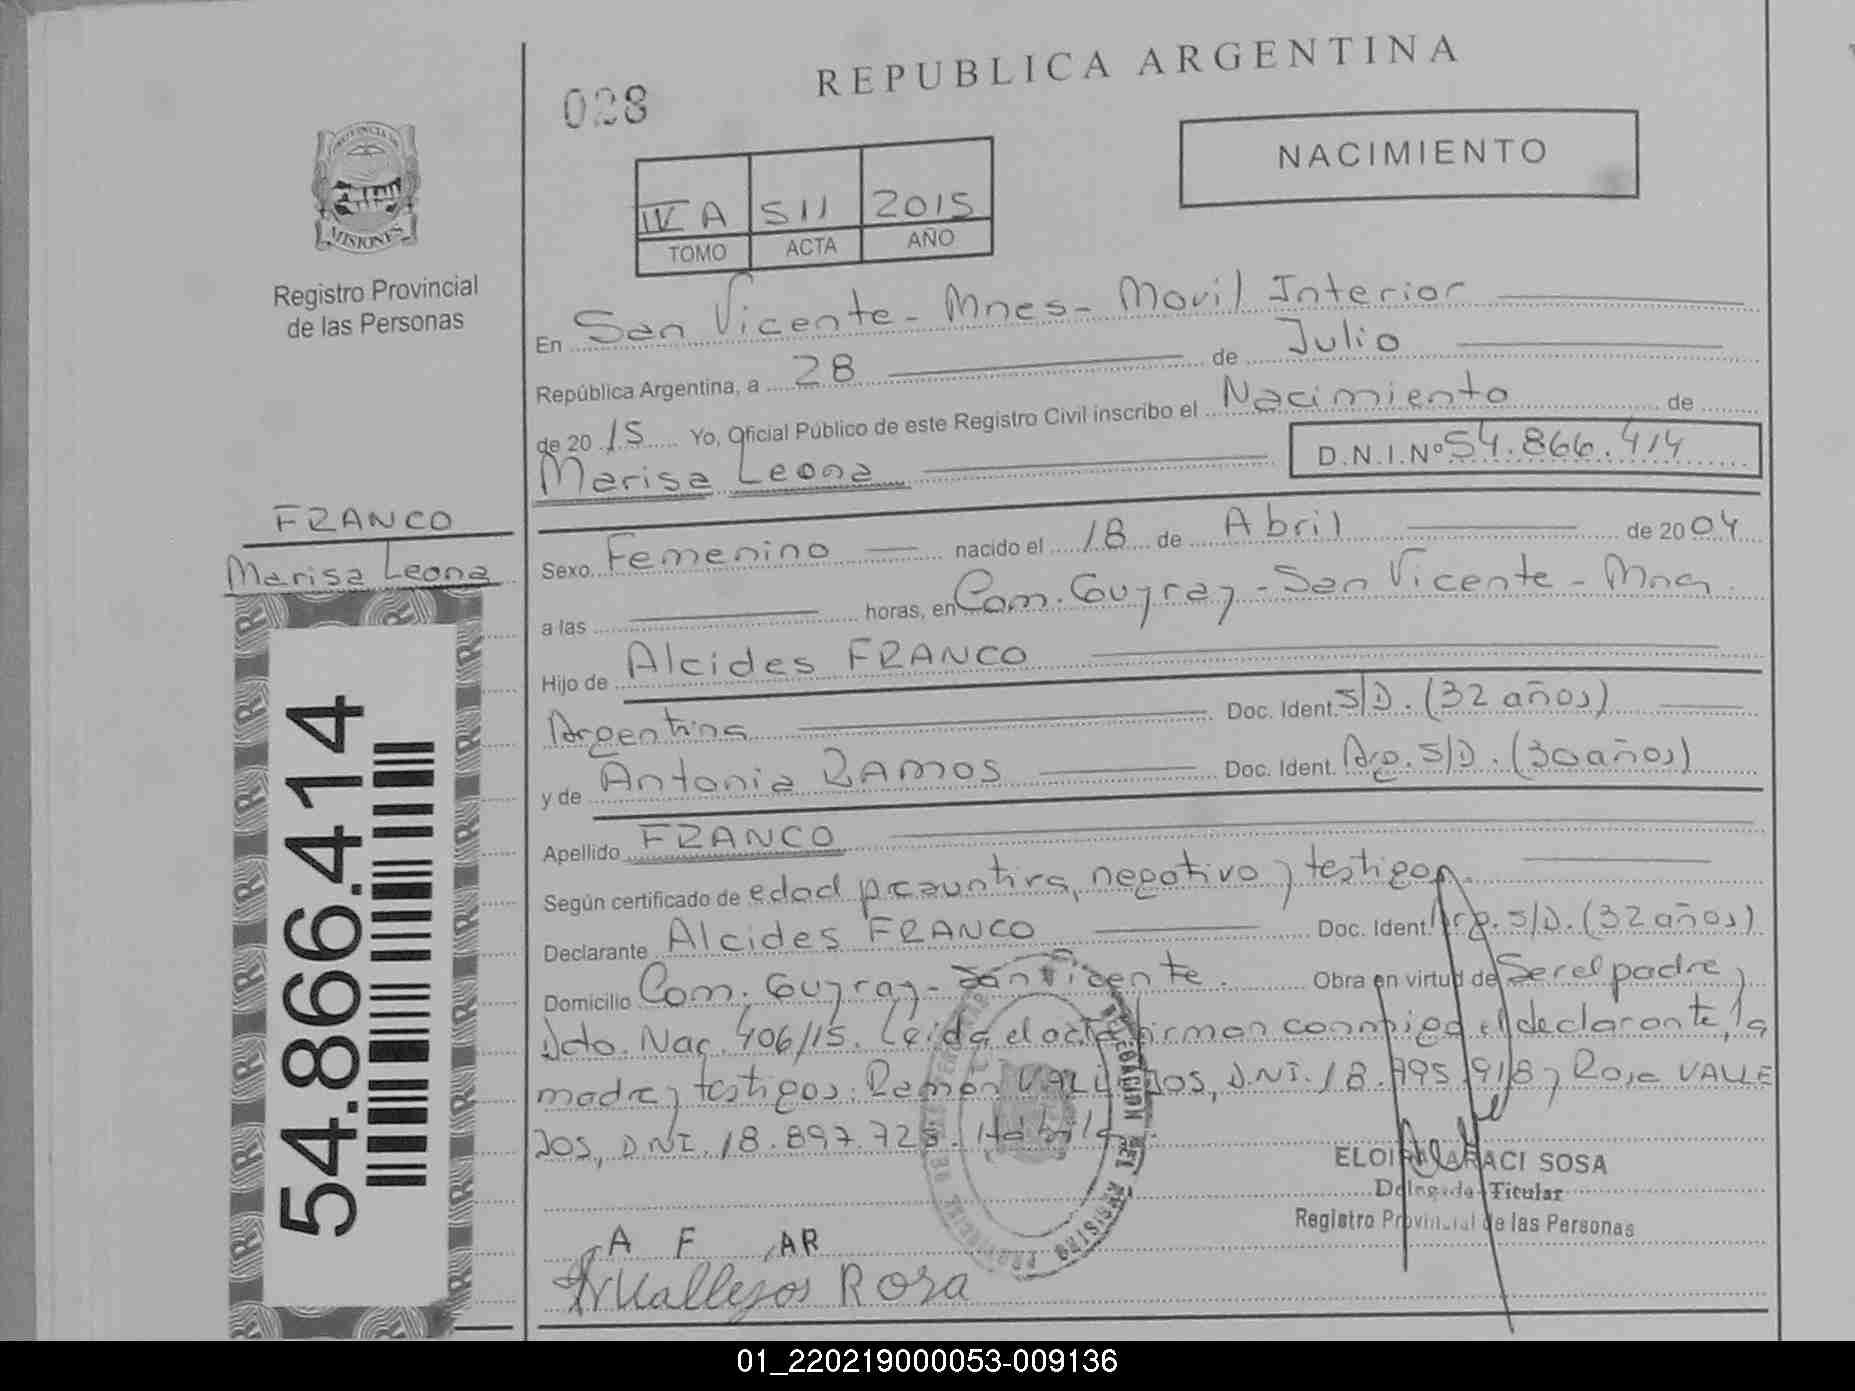 028
REPUBLICA ARGENTINA
NACIMIENTO
PROVINCIA DE
MISIONES
Registro Provincial
de las Personas
IV A 511 2015
TOMO ACTA AÑO
En San Vicente - Mnes - Movil Interior
República Argentina, a 28 de Julio
de 20 15 Yo, Oficial Público de este Registro Civil inscribo el Nacimiento de
Marisa Leona D.N.I.Nº 54.866.414
FRANCO
Marisa Leona
54.866.414
Sexo Femenino nacido el 18 de Abril de 2004
a las horas, en Com. Guyray - San Vicente - Mnes.
Hijo de Alcides FRANCO
Argentina Doc. Ident. S/D. (32 años)
y de Antonia RAMOS Doc. Ident. Arg. S/D. (30 años)
Apellido FRANCO
Según certificado de edad presuntiva, negativo y testigos.
Declarante Alcides FRANCO Doc. Ident. Arg. S/D. (32 años)
Domicilio Com. Guyray - San Vicente. Obra en virtud de Ser el padre y
Dcto. Nac. 406/15. Leida el acta firman conmigo el declarante, la
madre y testigos: Ramon VALLEJOS, D.N.I. 18.795.918 y Rosa VALLE
JOS, DNI. 18.897.728. Habiles.
DELEGACION DEL REGISTRO PROVINCIAL DE LAS PERSONAS
ELOIRA ARACI SOSA
Delegada Titular
Registro Provincial de las Personas
A F AR
Vallejos Rosa
01_220219000053-009136